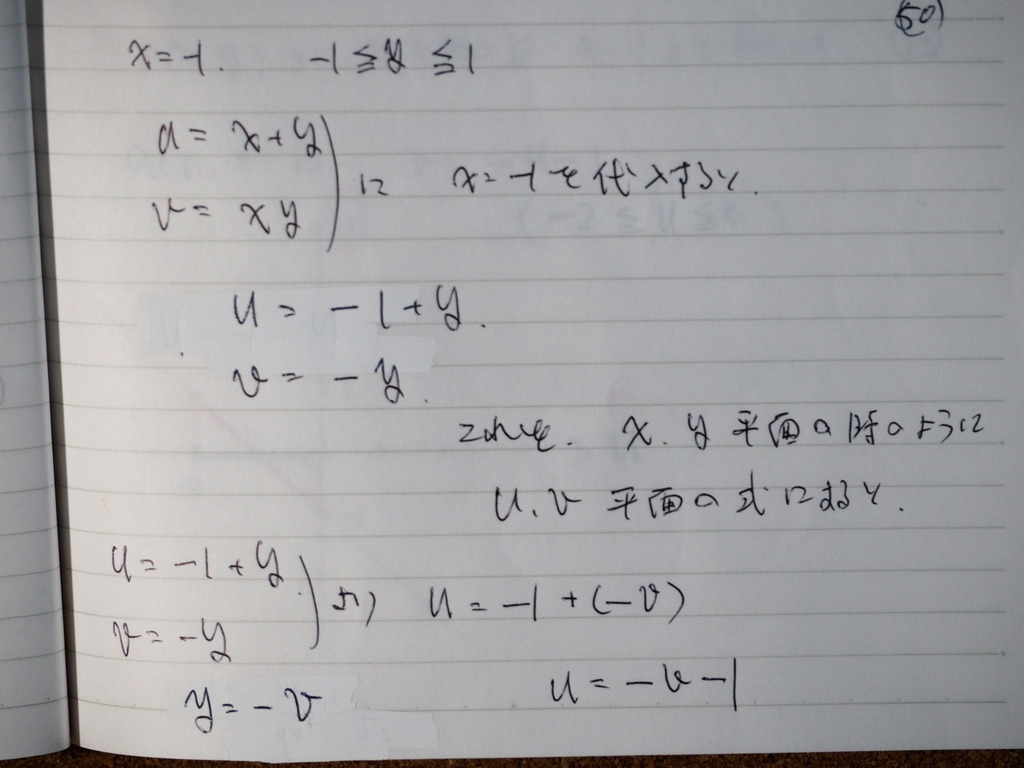 (50)
x=-1. -1≦y≦1
u= x+y
v= xy ) に x=-1を代入すると.
u = -1+y.
v = -y.
これを. x.y 平面の時のように
u.v 平面の式にすると.
u=-1+y
v=-y ) より u=-1+(-v)
y=-v u=-v-1